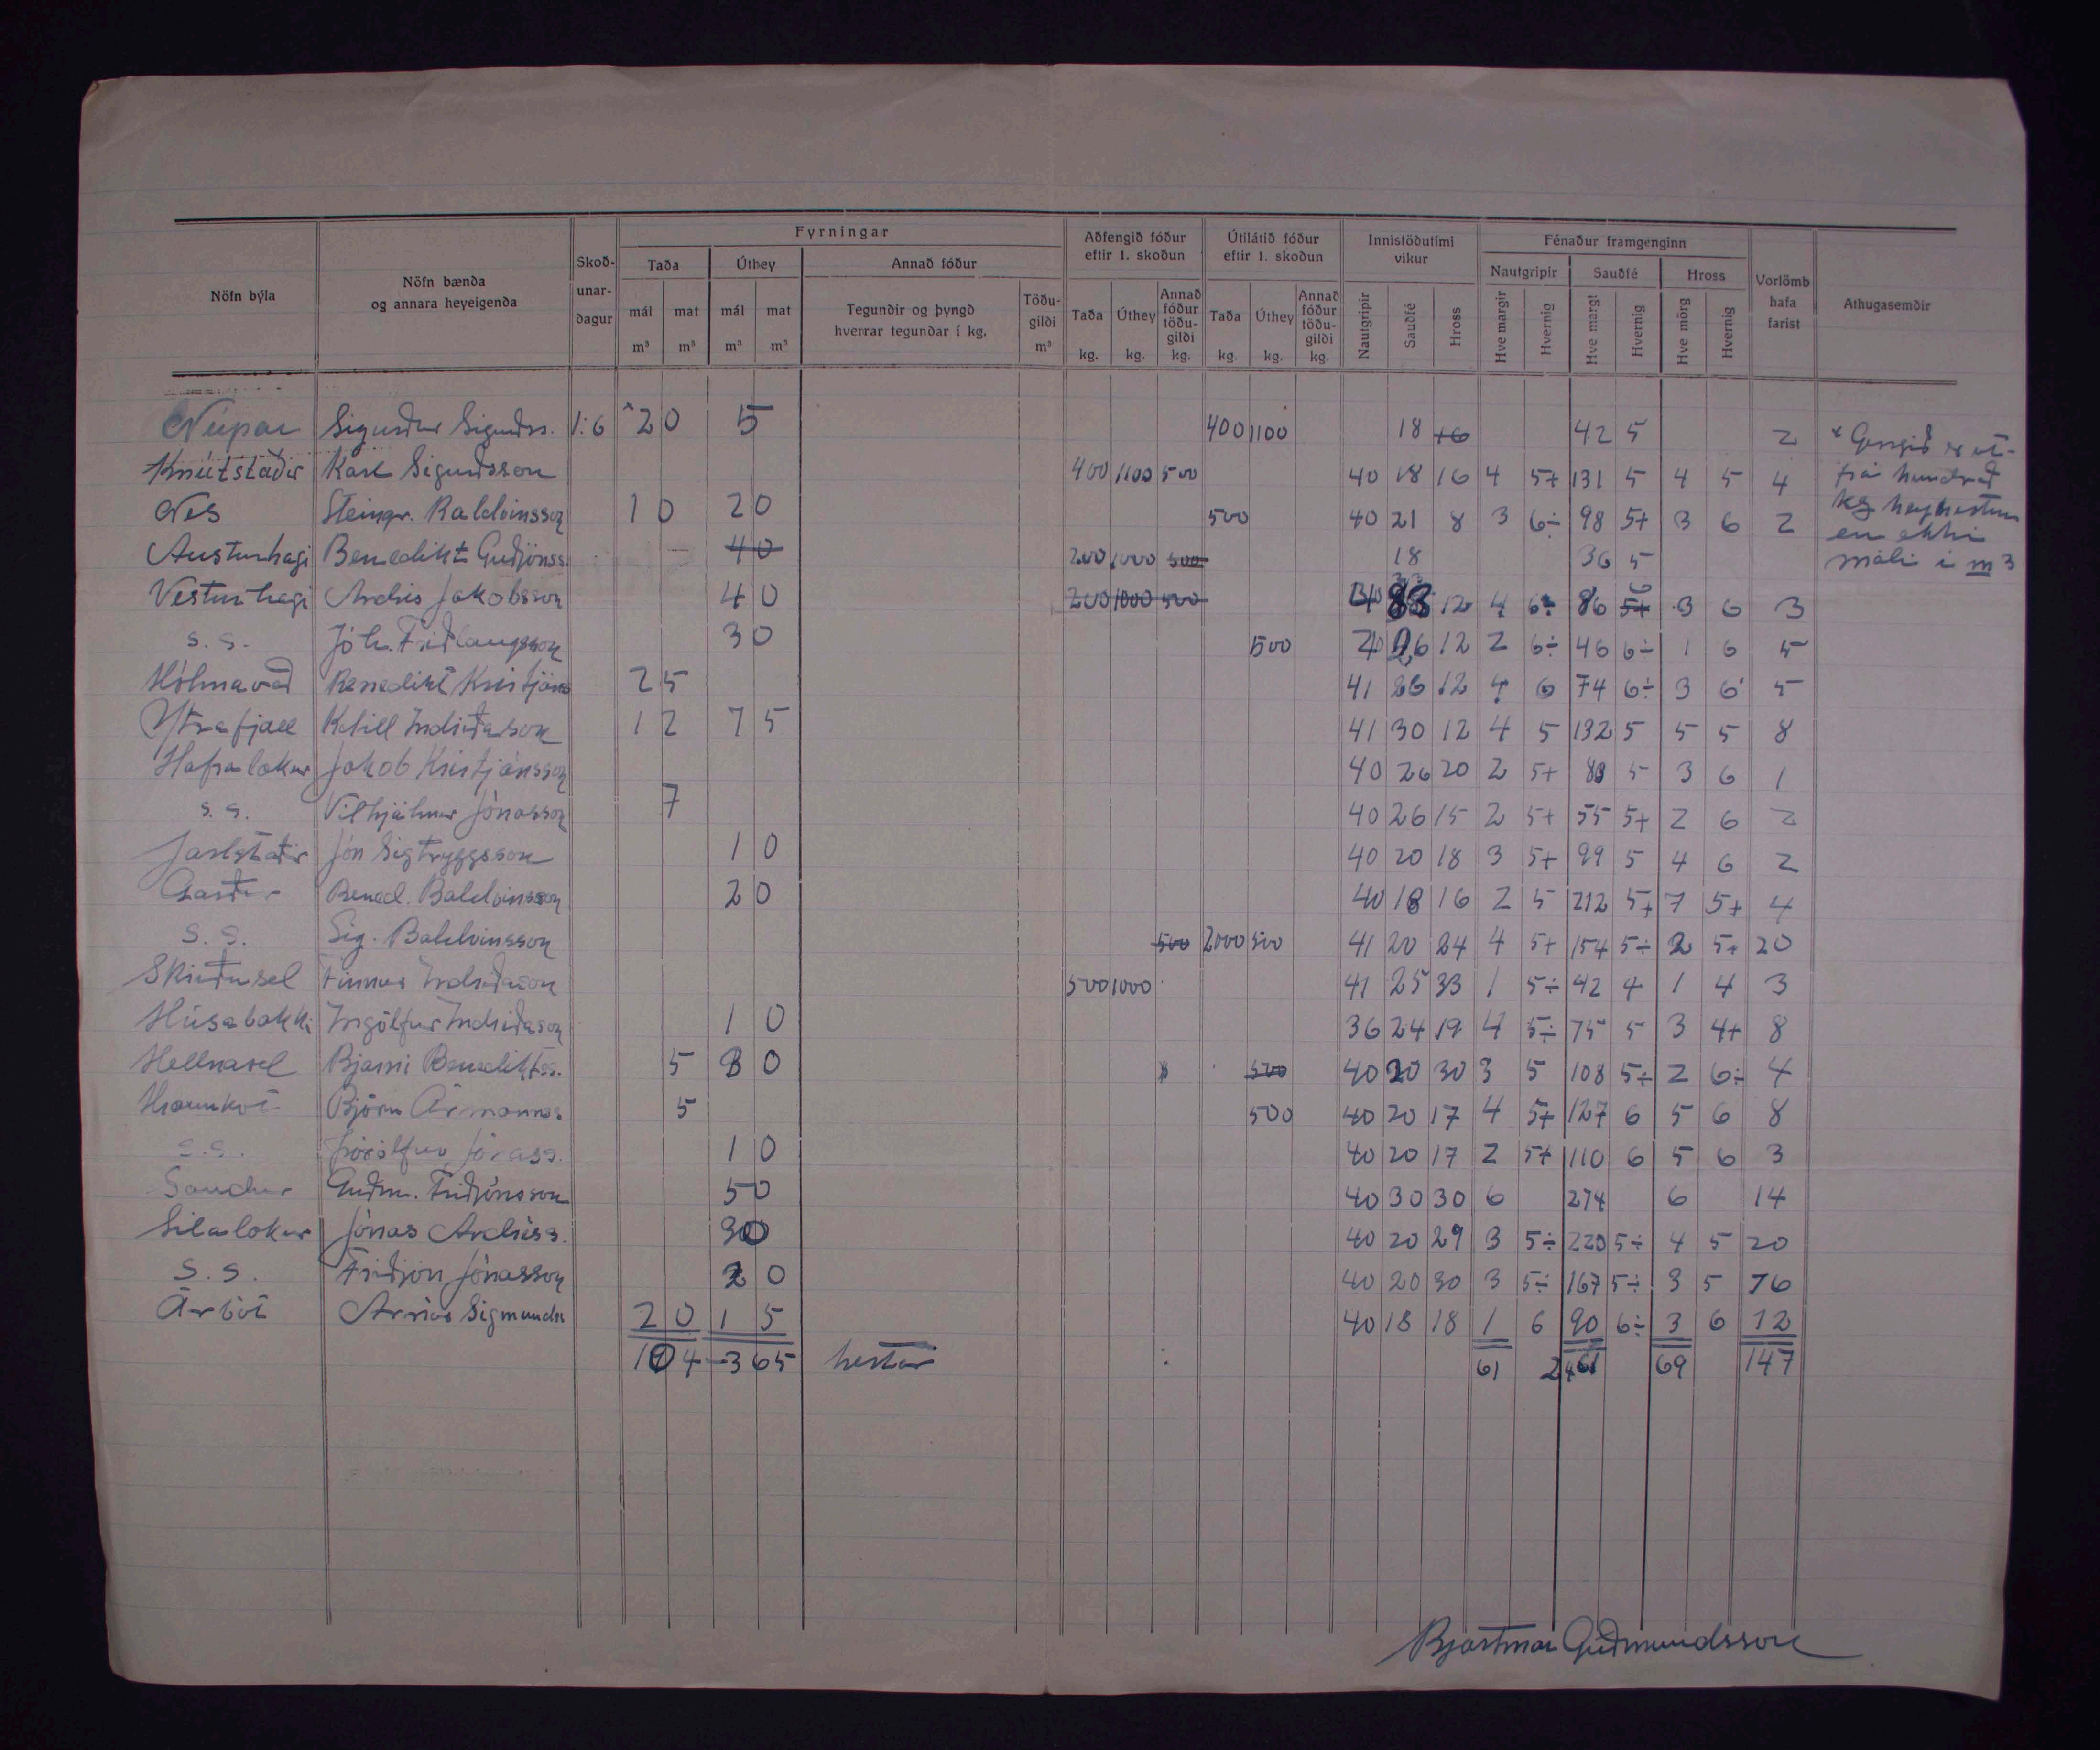 Nöfn býla | Nöfn bænda og annara heyeigenda | Skoð-unar-dagur | Fyrningar | Aðfengið fóður eftir 1. skoðun | Útilátið fóður eftir 1. skoðun | Innistöðutími vikur | Fénaður framgenginn | Vorlömb hafa farist | Athugasemdir
Taða | Úthey | Annað fóður | Nautgripir | Sauðfé | Hross
mál m³ | mat m³ | mál m³ | mat m³ | Tegundir og þyngd hverrar tegundar í kg. | Töðu-gildi m³ | Taða kg. | Úthey kg. | Annað fóður töðu-gildi kg. | Taða kg. | Úthey kg. | Annað fóður töðu-gildi kg. | Nautgripir | Sauðfé | Hross | Hve margir | Hvernig | Hve margt | Hvernig | Hve mörg | Hvernig
Núpar Sigurður Sigurðss. 1:6 ×20 5 400 1100 18 16 42 5 2
Knútstaðir Karl Sigurðsson 400 1100 500 40 18 16 4 5+ 131 5 4 5 4
Nes Steingr. Baldvinsson 10 20 500 40 21 8 3 6÷ 98 5+ 3 6 2
Austurhagi Benedikt Guðjónss. 40 200 1000 500 18 36 5
Vesturhagi Andrés Jakobsson 40 200 1000 500 12 4 6÷ 86 3 6 3
s.s. Jóh. Friðlaugsson 30 500 12 2 6÷ 46 6÷ 1 6 5
Hólmavað Benedikt Kristjáns 25 41 26 12 4 6 74 6÷ 3 6 5
Ytrafjall Ketill Indriðason 12 75 41 30 12 4 5 132 5 5 5 8
Hafralækur Jakob Kristjánsson 40 26 20 2 5+ 5 3 6 1
s.s. Vilhjálmur Jónasson 7 40 26 15 2 5+ 55 5+ 2 6 2
Jarlstaðir Jón Sigtryggsson 10 40 20 18 3 5+ 99 5 4 6 2
Garður Bened. Baldvinsson 20 40 18 16 2 5 212 5+ 7 5+ 4
s.s. Sig. Baldvinsson 500 2000 500 41 20 24 4 5+ 154 5÷ 2 5+ 20
Skriðusel Finnur Indriðason 500 1000 41 25 33 1 5÷ 42 4 1 4 3
Húsabakki Ingólfur Indriðason 10 36 24 19 4 5÷ 75 5 3 4+ 8
Hellnasel Bjarni Benediktss. 5 80 500 40 20 30 3 5 108 5+ 2 6÷ 4
Hraunkot Björn Ármannss. 5 500 40 20 17 4 5+ 127 6 5 6 8
s.s. Þórólfur Jónass. 10 40 20 17 2 5+ 110 6 5 6 3
Sandur Guðm. Friðjónsson 50 40 30 30 6 274 6 14
Sílalækur Jónas Andréss. 30 40 20 29 3 5÷ 220 5÷ 4 5 20
s.s. Friðjón Jónasson 20 40 20 30 3 5÷ 167 5÷ 3 5 16
Árbót Sigmundss 20 15 40 18 18 1 6 90 6÷ 3 6 12
104 – 365 hestar 61 2461 69 147
× Gengið er út-
frá hundrað
kg heyhestum
en ekki
máli í m3
Bjartmar Guðmundsson